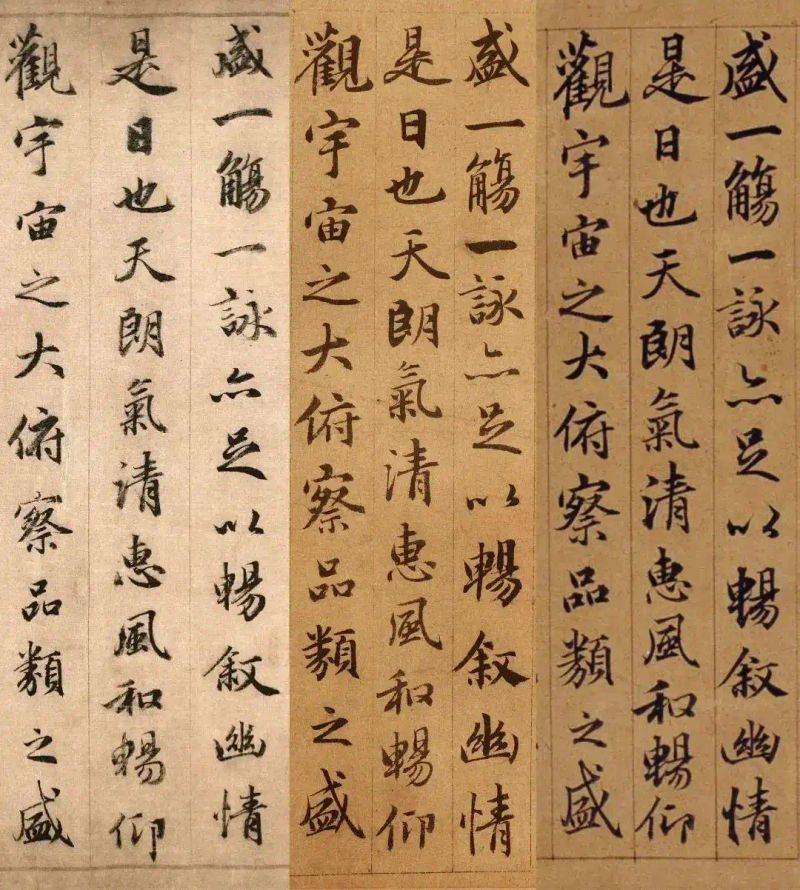 盛一觴一詠亦足以暢叙幽情
是日也天朗氣清惠風和暢仰
觀宇宙之大俯察品類之盛
盛一觴一詠亦足以暢叙幽情
是日也天朗氣清惠風和暢仰
觀宇宙之大俯察品類之盛
盛一觴一詠亦足以暢叙幽情
是日也天朗氣清惠風和暢仰
觀宇宙之大俯察品類之盛